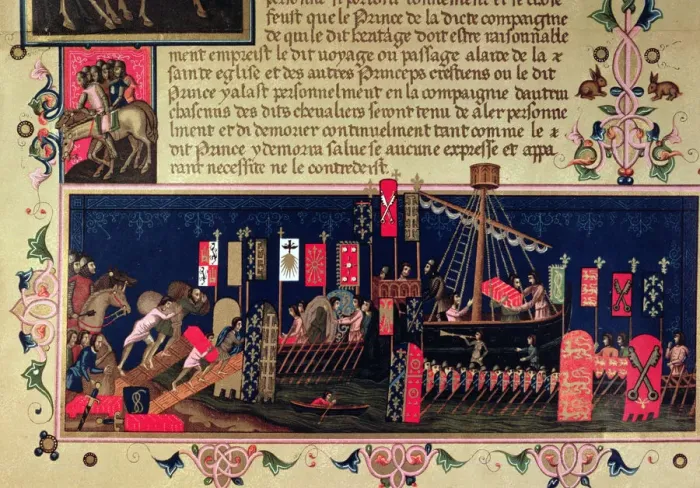 personne si portoit bonnement et se chose
feust que le Prince de la dicte compaigme
de qui le dit heritage doit estre raisonnable
ment empreist le dit voyage ou passage alaide de la
sainte eglise et des autres Princeps crestiens ou le dit
Prince yalast personnelment en la compaignie dautrui
chascuns des dits chevaliers seront tenu de aler personne
lment et di demorer continuelment tant comme le
dit Prince y demorra salue se aucune expresse et appa
rant necessite ne le contredeist